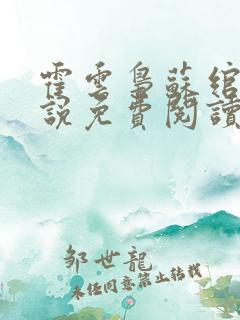 霍雲梟蘇綰
說免費閱讀
邹世龍
未经同意禁止转载